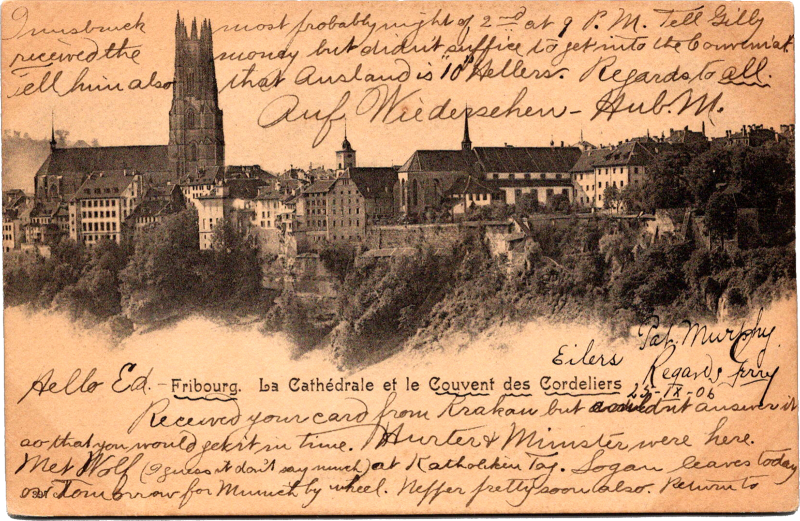 Innsbruck most probably night of 2nd at 9 P.M. Tell Gilly
received the money but didn't suffice to get into the Conveniat.
Tell him also that Ausland is "10" Hellers. Regards to all.
Auf Wiedersehen - Hub. M.
Pat. Murphy
Eilers Regards Jerry
Hello Ed. - Fribourg. La Cathédrale et le Couvent des Cordeliers 25-IX-06
Received your card from Krakau but couldn't answer it
so that you would get it in time. Hurter & Minister were here.
Met Wolf (I guess it don't say much) at Katholiken Tag. Logan leaves today
or Tomorrow for Munich by wheel. Neffer pretty soon also. Return to